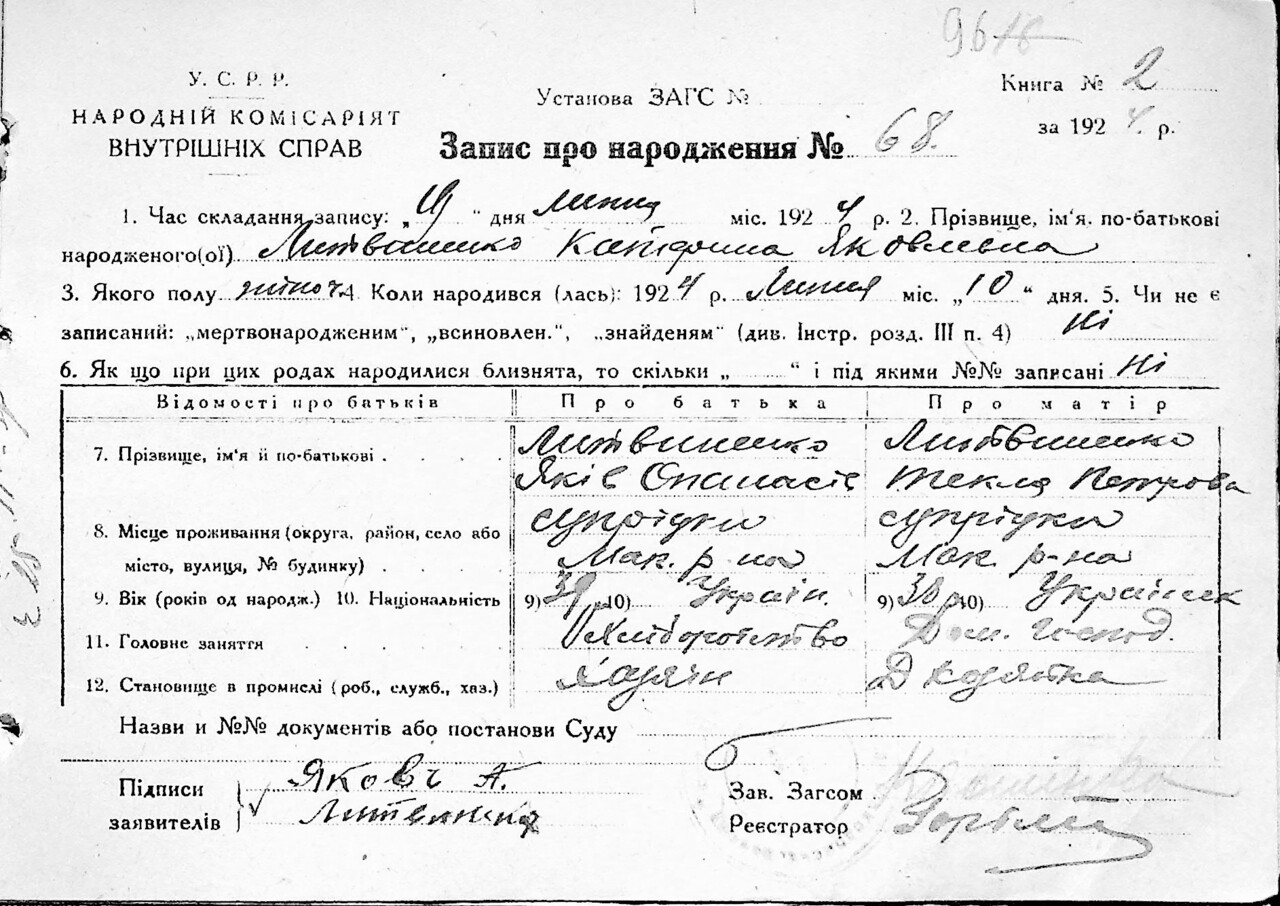 96
У. С. Р. Р.
НАРОДНІЙ КОМІСАРІЯТ
ВНУТРІШНІХ СПРАВ
Установа ЗАГС №
Книга № 2
за 1924 р.
Запис про народження № 68.
1. Час складання запису: „ “ дня липня міс. 1924 р. 2. Прізвище, ім'я, по-батькові
народженого(ої) Литвиненко Катерина Яковлевна
3. Якого полу жіноч. 4. Коли народився (лась): 1924 р. Липня міс. „10“ дня. 5. Чи не є
записаний: „мертвонародженим“, „всиновлен.“, „знайденям“ (див. Інстр. розд. III п. 4) Ні
6. Як що при цих родах народилися близнята, то скільки „ “ і під якими №№ записані Ні
Відомості про батьків Про батька Про матір
7. Прізвище, ім'я й по-батькові Литвиненко Литвиненко
Яків Опанасів Текля Петрова
8. Місце проживання (округа, район, село або
місто, вулиця, № будинку) Мак. р-на Мак. р-на
9. Вік (років од народж.) 10. Національність 9) 39 р. 10) Україн. 9) 38 р. 10) Українк
11. Головне заняття Хліборобство Дом. господ.
12. Становище в промислі (роб., служб., хаз.) Хазяін
Назви и №№ документів або постанови Суду
Підписи Яковъ А.
заявителів
Зав. Загсом
Реєстратор